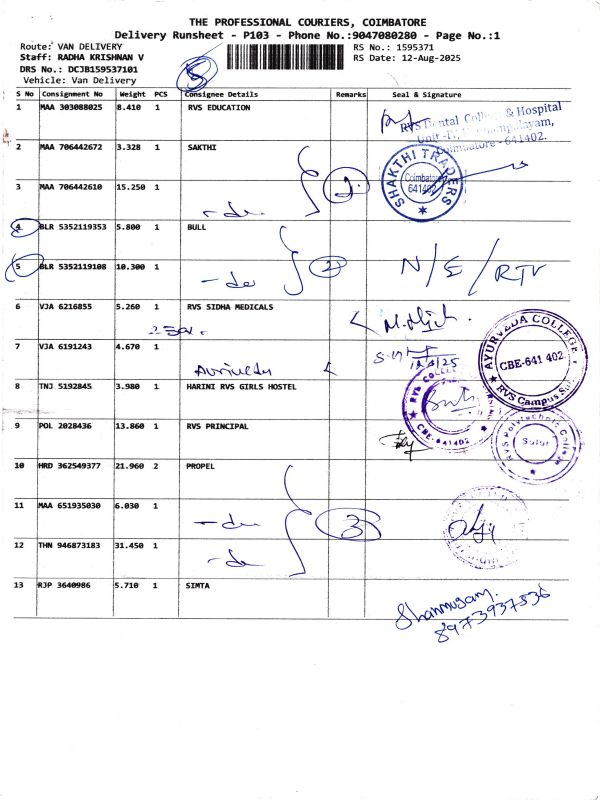 THE PROFESSIONAL COURIERS, COIMBATORE
Delivery Runsheet - P103 - Phone No.:9047080280 - Page No.:1
Route: VAN DELIVERY RS No.: 1595371
Staff: RADHA KRISHNAN V RS Date: 12-Aug-2025
DRS No.: DCJB159537101
Vehicle: Van Delivery
S No Consignment No Weight PCS Consignee Details Remarks Seal & Signature
1 MAA 303088025 8.410 1 RVS EDUCATION
RVS Dental College & Hospital
Coimbatore - 641402.
2 MAA 706442672 3.328 1 SAKTHI
SHAKTHI TRADERS
Coimbatore
641402
3 MAA 706442610 15.250 1
- do 2.
4 BLR 5352119353 5.800 1 BULL
5 BLR 5352119108 10.300 1
- do 2 N/S/RTV
6 VJA 6216855 5.260 1 RVS SIDHA MEDICALS
7 VJA 6191243 4.670 1
AYURVEDA COLLEGE
CBE-641 402
RVS Campus Sulur
8 TNJ 5192845 3.980 1 HARINI RVS GIRLS HOSTEL
RVS COLLEGE
CBE-641402
9 POL 2028436 13.860 1 RVS PRINCIPAL
RVS Polytechnic College
Sulur
10 HRD 362549377 21.960 2 PROPEL
11 MAA 651935030 6.030 1
- do 3
12 THN 946873183 31.450 1
- do
13 RJP 3640986 5.710 1 SIMTA
Shanmugam.
8973937536